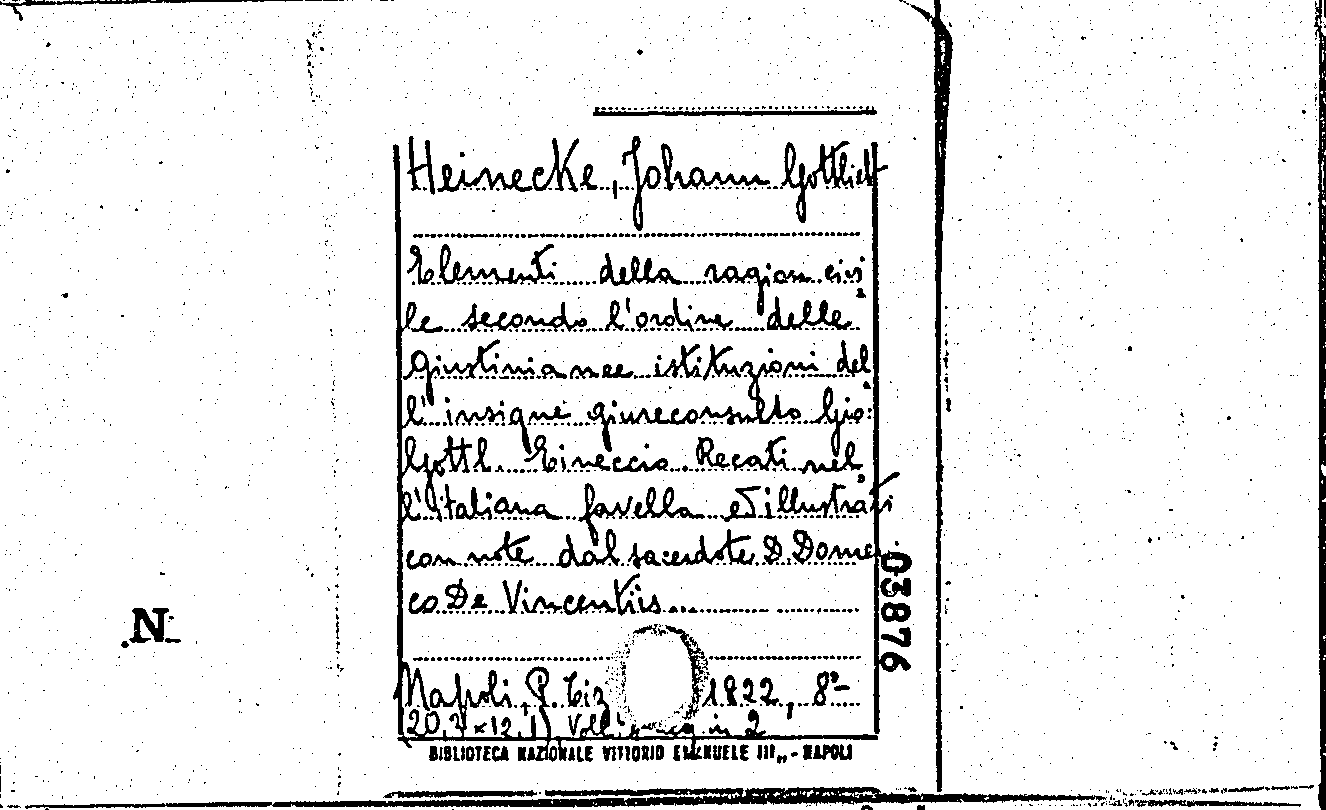 Heinecke, Johann Gottlieb
Elementi della ragion civi
le secondo l'ordine delle
Giustinianee istituzioni del
l'insigne giureconsulto Gio:
Gottl. Eineccio. Recati nel
l'italiana favella ed illustrati
con note dal sacerdote D. Domeni
co De Vincentiis...
Napoli, P. Tiz 1822, 8°-
(20,7×12,1) Voll. in 2
BIBLIOTECA NAZIONALE VITTORIO EMANUELE III„ - NAPOLI
03876
N